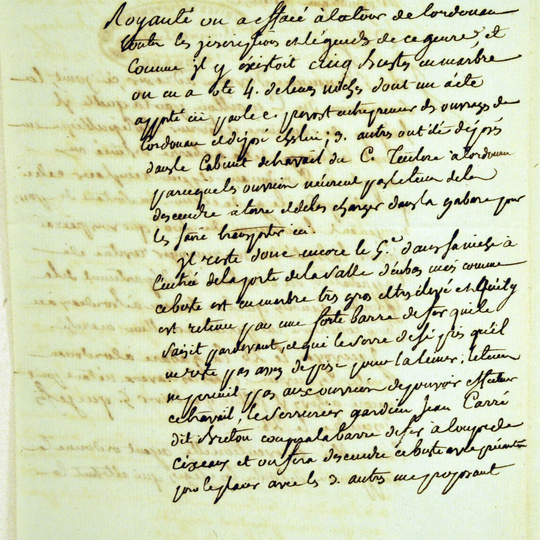 Royauté on a effacé à la tour de Cordouan
toutes les inscriptions et légendes de ce genre, et
Comme il y existoit cinq bustes en marbre
on en a oté 4. de leurs niches dont un a été
apporté ici par le c. prevost entrepreneur des ouvrages de
Cordouan et déposé 3. autres ont été déposés
dans le Cabinet de travail du C. Teulere a Cordouan
parceque les ouvriers n'eurent pas le tems de les
descendre a terre et de les charger dans la gabare pour
les faire transporter ici.
il reste donc encore le 5.e dans sa niche à
l'entrée de la porte de la Salle d'en bas mais comme
ce buste est en marbre tres gros et tres élevé et qu'il y
est retenu par une forte barre de fer qui le
saisit par devant, et qui le serre de si près qu'il
ne reste pas assez de pour la limer; le tems
ne permit pas aux ouvriers de pouvoir effectuer
ce travail. le serrurier gardien Jean Carré
dit Breton coupera la barre de fer à coups de
cizeaux et on fera descendre ce buste avec précaution
pour le placer avec les 3. autres me proposant